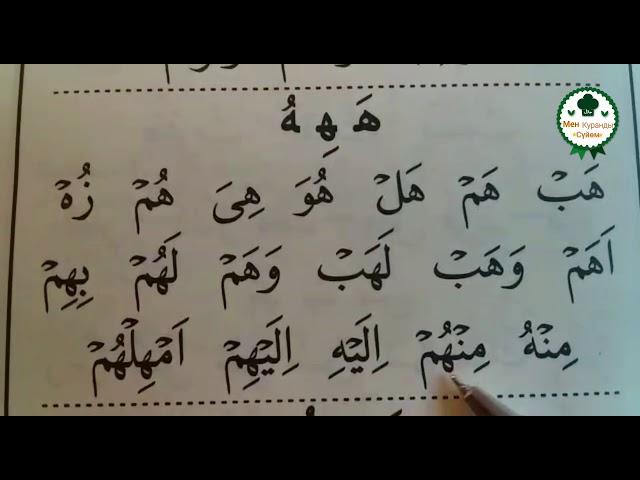 هَ هِ هُ
هَبْ هَمْ هَلْ هُوَ هِىَ هُمْ زُهْ
اَهَمْ وَهَبْ لَهَبْ وَهَمْ لَهُمْ بِهِمْ
مِنْهُ مِنْهُمْ اِلَيْهِ اِلَيْهِمْ اَمْهِلْهُمْ
Мен Куранды
«Сүйем»